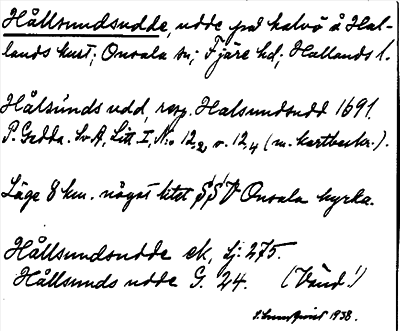 Hållsundsudde, udde på halvö å Hal-
lands kust; Onsala sn; Fjäre hd, Hallands l.
Hålsunds udd, resp. Halsundsudd 1691.
P. Gedda. Sv A, Litt I, No 12₂, o. 12₄ (m. kartbeskr.).
Läge 8 km. något litet SSV Onsala kyrka.
Hållsundsudde ek, Sj: 275.
Hållsunds udde G. 24. (Vänd!)
1938.